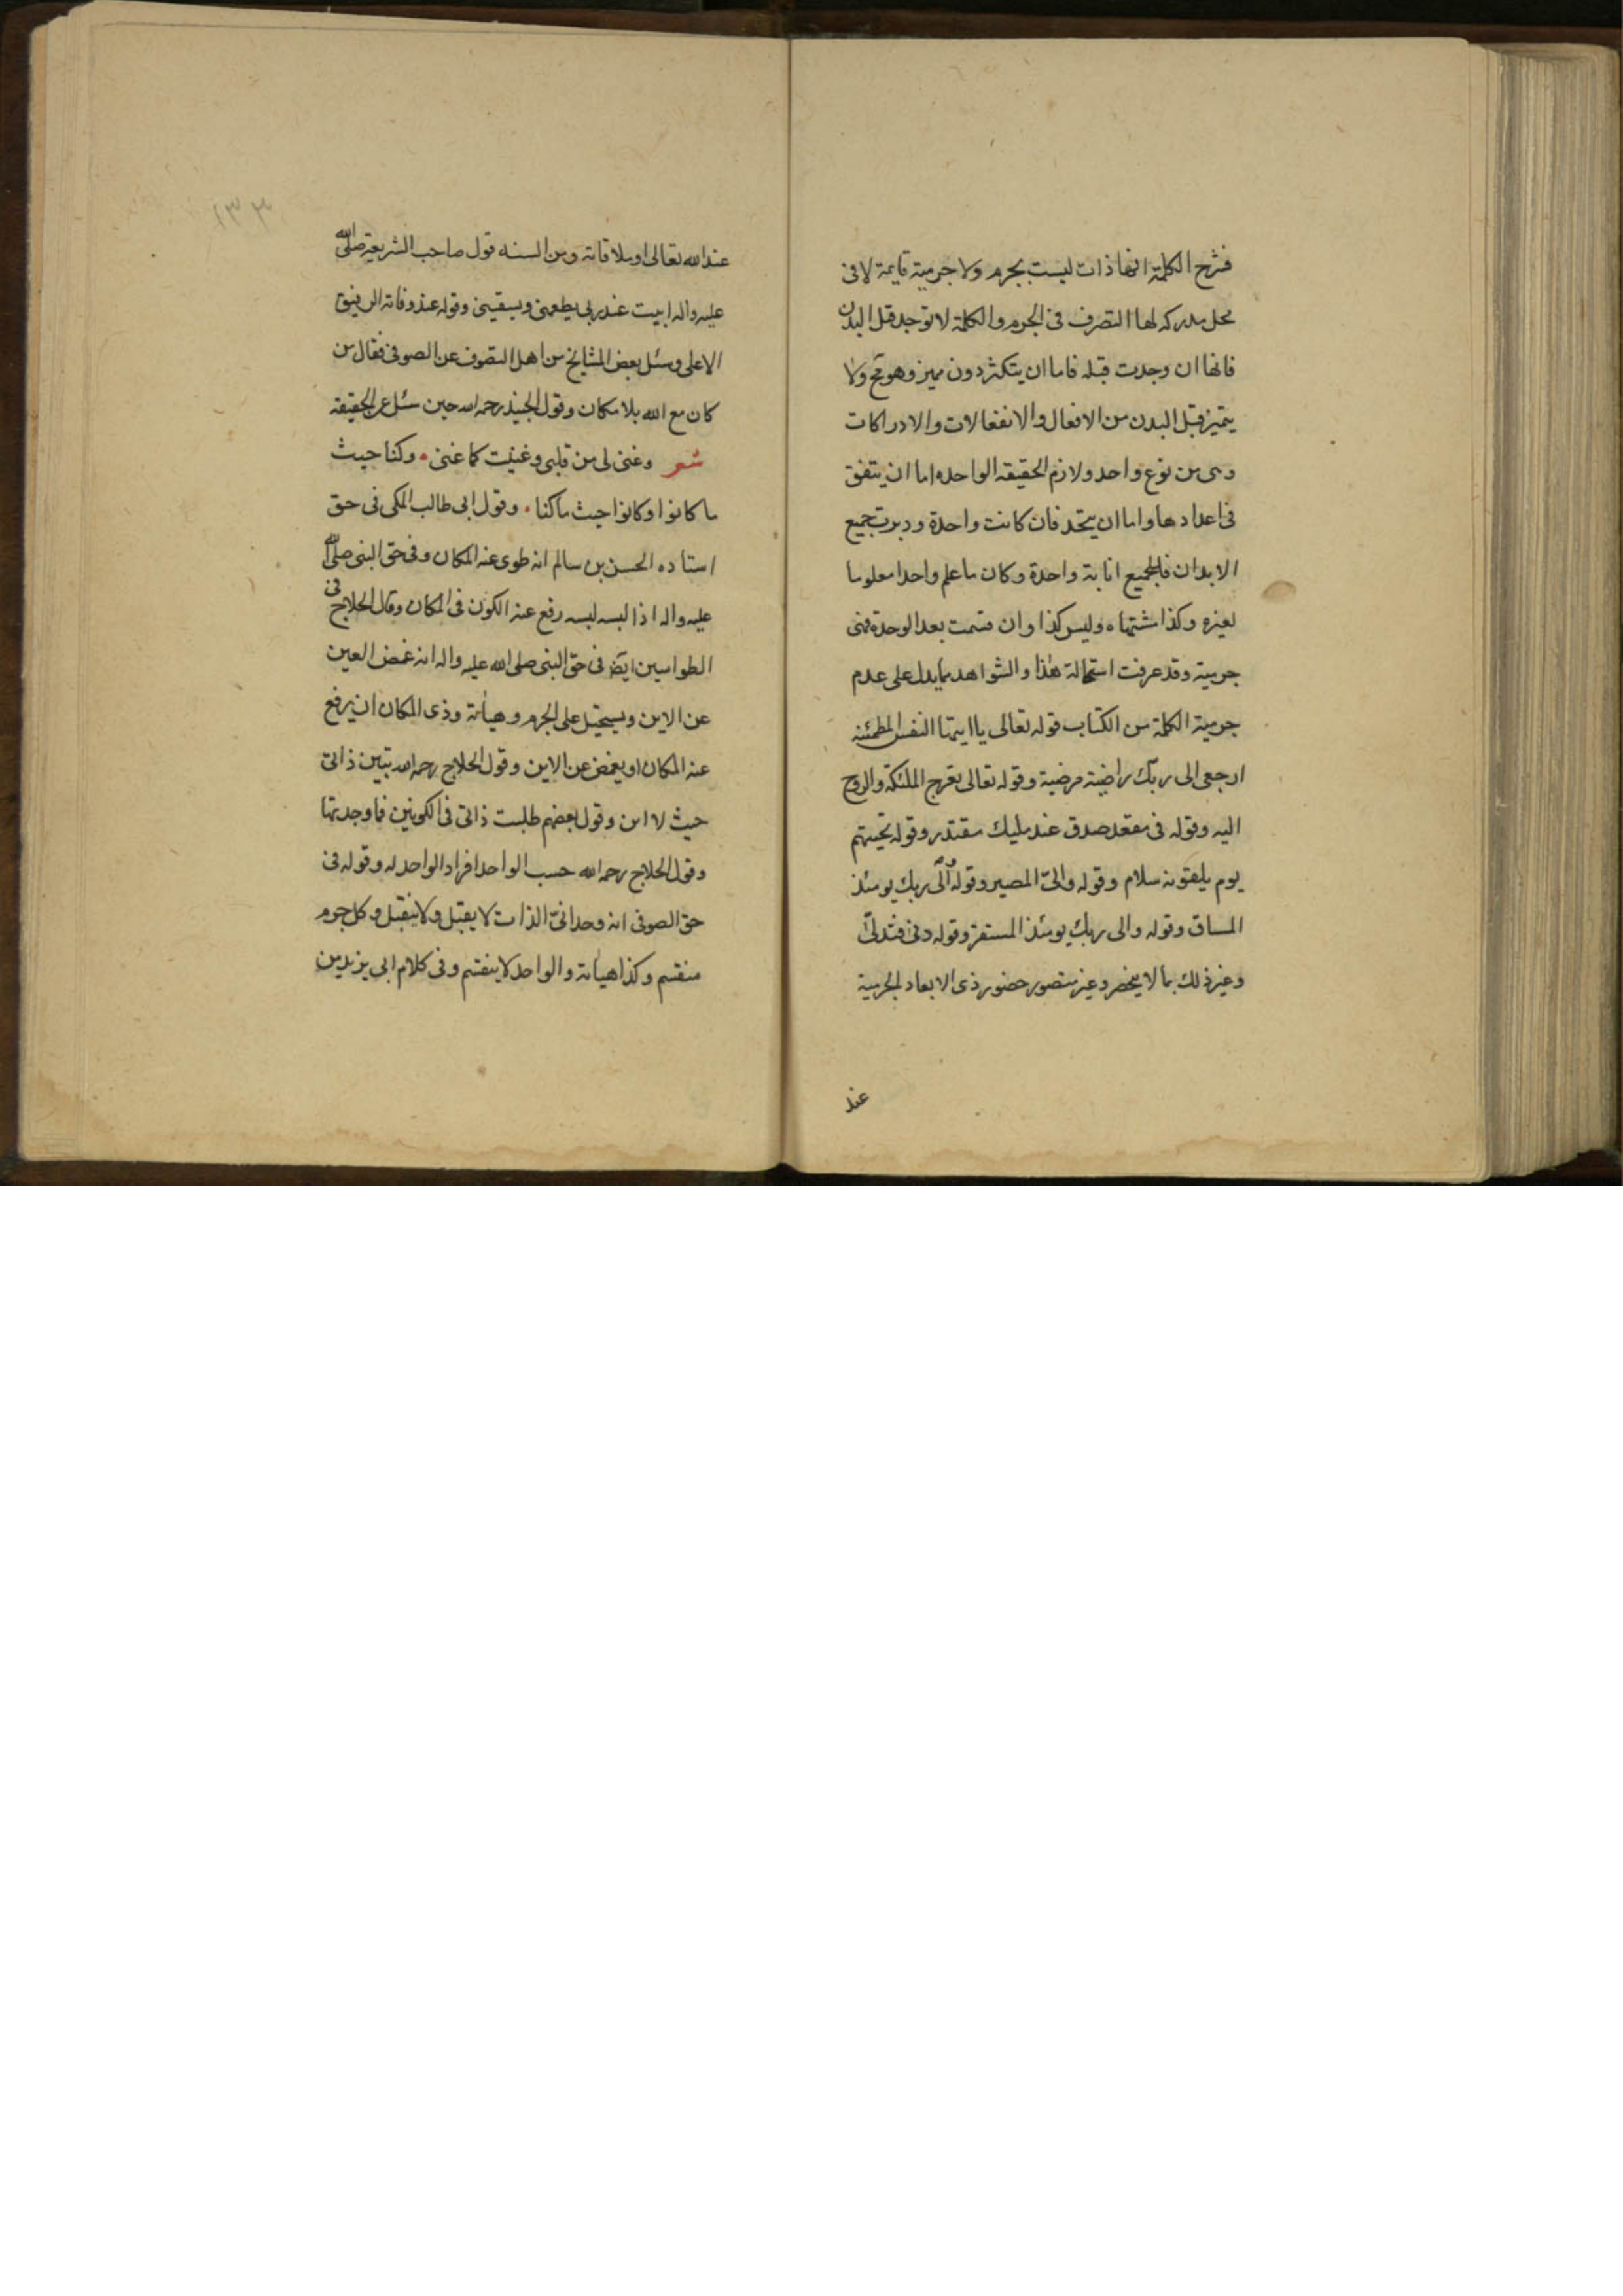 فشرح الكلمة انها ذات ليست بجرم ولا جرمية قايمة لا فى
محل مدركه لها التصرف فى الجرم والكلمة لا توجد قبل البدن
فانها ان وجدت قبله فاما ان يتكثر دون مميز وهو مح ولا
يتميز قبل البدن من الافعال والانفعالات والادراكات
وهى من نوع واحد ولازم الحقيقه الواحده اما ان يتفق
فى اعدادها واما ان يتحد فان كانت واحدة ودبرت جميع
الابدان فللجميع انانية واحدة وكان ما علم واحد معلوما
لغيره وكذا مشتهاه وليس كذا وان قسمت بعد الوحدة فهى
جرمية وقد عرفت استحالة هذا والشواهد بما يدل على عدم
جرمية الكلمة من الكتاب قوله تعالى يا ايتها النفس المطمئنه
ارجعى الى ربك راضية مرضية وقوله تعالى تعرج الملئكة والروح
اليه وقوله فى مقعد صدق عند مليك مقتدر وقوله تحيتهم
يوم يلقونه سلام وقوله والىّ المصير وقوله الى ربك يومئذ
المساق وقوله والى ربك يومئذ المستقر وقوله دنى فتدلى
وغير ذلك مما لا ينحصر وغير متصور حضور ذى الابعاد الجرمية
عند
١٣٣
عند الله تعالى او ملاقاته ومن السنه قول صاحب الشريعة صلى الله
عليه واله ابيت عند ربى يطعمنى ويسقينى وقوله عند وفاته الرفيق
الاعلى وسئل بعض المشايخ من اهل التصوف عن الصوفى فقال من
كان مع الله بلا مكان وقول الجنيد رحمه الله حين سئل عن الحقيقه
شعر وغنى لى من قلبى وغنيت كما غنى • وكنا حيث
ما كانوا وكانوا حيث ما كنا • وقول ابى طالب المكى فى حق
استاده الحسن بن سالم انه طوى عنه المكان وفى حق النبى صلى الله
عليه واله اذا لبسه لبسه رفع عنه الكون فى المكان وقال الحلاج فى
الطواسين ايضا فى حق النبى صلى الله عليه واله انه غمض العين
عن الاين ويستحيل على الجرم وهيأته وذى المكان ان يرفع
عنه المكان او يغمض عن الاين وقول الحلاج رحمه الله تبين ذاتى
حيث لا اين وقول بعضهم طلبت ذاتى فى الكونين فما وجدتها
وقول الحلاج رحمه الله حسب الواحد افراد الواحد له وقوله فى
حق الصوفى انه وحدانىّ الذات لا يقبل ولا ينقبل وكل جرم
منقسم وكذا هيأته والواحد لا ينقسم وفى كلام ابى يزيد من